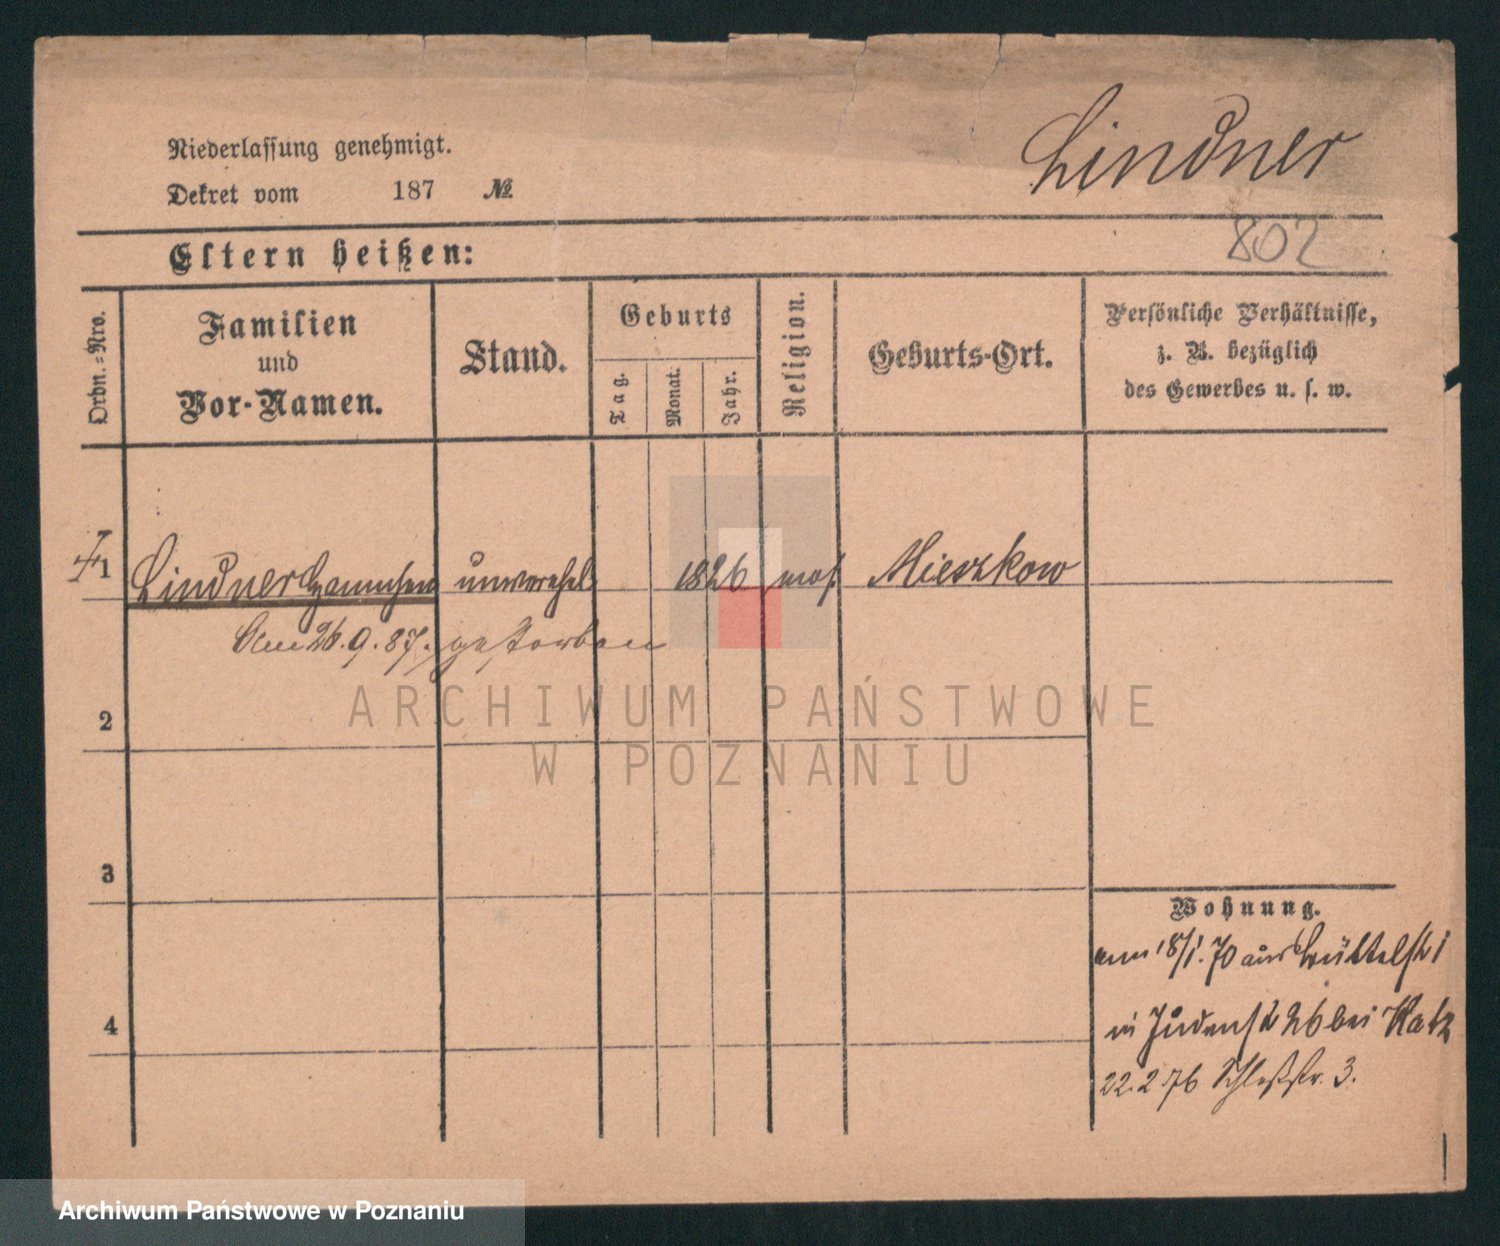 Lindner
Niederlassung genehmigt.
Dekret vom 187 №
802
Eltern heißen:
Ordn.=Nro.
Familien
und
Vor-Namen.
Stand.
Geburts
Tag.
Monat.
Jahr.
Religion.
Geburts-Ort.
Persönliche Verhältnisse,
z. B. bezüglich
des Gewerbes u. s. w.
1 Lindner unverehel. 1826 mos. Mieszkow
Am 26.9.87. gestorben
2
3
4
Wohnung.
am 18/1.70 aus Büttelstr 1
in Judenstr 26 bei Katz
22.2 76 Schloßstr. 3.
ARCHIWUM PAŃSTWOWE
W POZNANIU
Archiwum Państwowe w Poznaniu